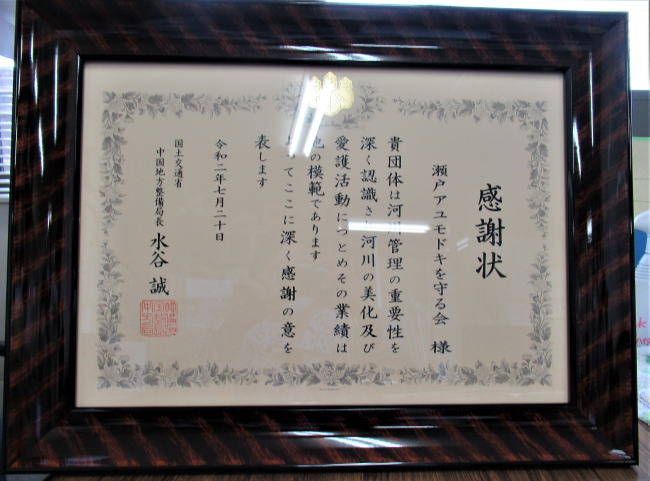 感謝状
瀬戸アユモドキを守る会 様
貴団体は河川管理の重要性を
深く認識され河川の美化及び
愛護活動につとめその業績は
他の模範であります
てここに深く感謝の意を
表します
令和二年七月二十日
国土交通省
中国地方整備局長 水谷 誠